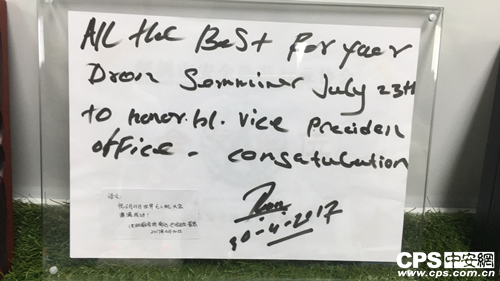 All the Best for year
Dron Semminer July 23th
to honor.bl. vice President
office - congatulation
30-4-2017
译文:
CPS中安網
www.cps.com.cn